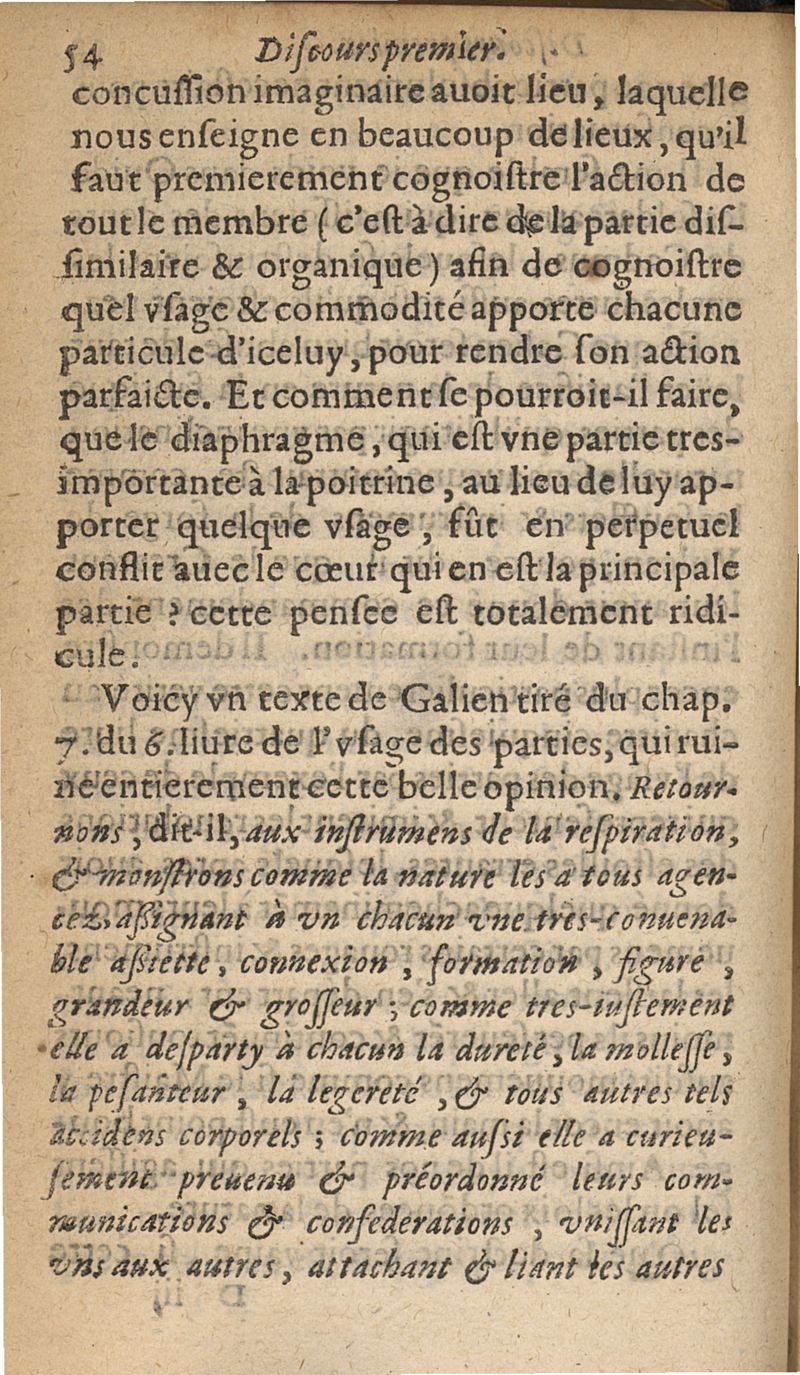 54 Diſcours premier.
concuſſion imaginaire auoit lieu, laquelle
nous enſeigne en beaucoup de lieux, qu'il
faut premierement cognoiſtre l'action de
tout le membre (c'eſt à dire de la partie diſ-
ſimilaire & organique) afin de cognoiſtre
quel vſage & commodité apporte chacune
particule d'iceluy, pour rendre ſon action
parfaicte. Et comment ſe pourroit-il faire,
que le diaphragme, qui eſt vne partie tres-
importante à la poitrine, au lieu de luy ap-
porter quelque vſage, fût en perpetuel
conflit auec le cœur qui en eſt la principale
partie ? cette penſee eſt totalement ridi-
cule.
Voicy vn texte de Galien tiré du chap.
7. du 6. liure de l'vſage des parties, qui rui-
ne entierement cette belle opinion. Retour-
nons, dit-il, aux inſtrumens de la reſpiration,
& monſtrons comme la nature les a tous agen-
cez, aſſignant à vn chacun vne tres-conuena-
ble aſſiette, connexion, formation, figure,
grandeur & groſſeur ; comme tres-iuſtement
elle a deſparty à chacun la dureté, la molleſſe,
la peſanteur, la legereté, & tous autres tels
accidens corporels ; comme auſsi elle a curieu-
ſement preuenu & préordonné leurs com-
munications & confederations, vniſſant les
vns aux autres, attachant & liant les autres